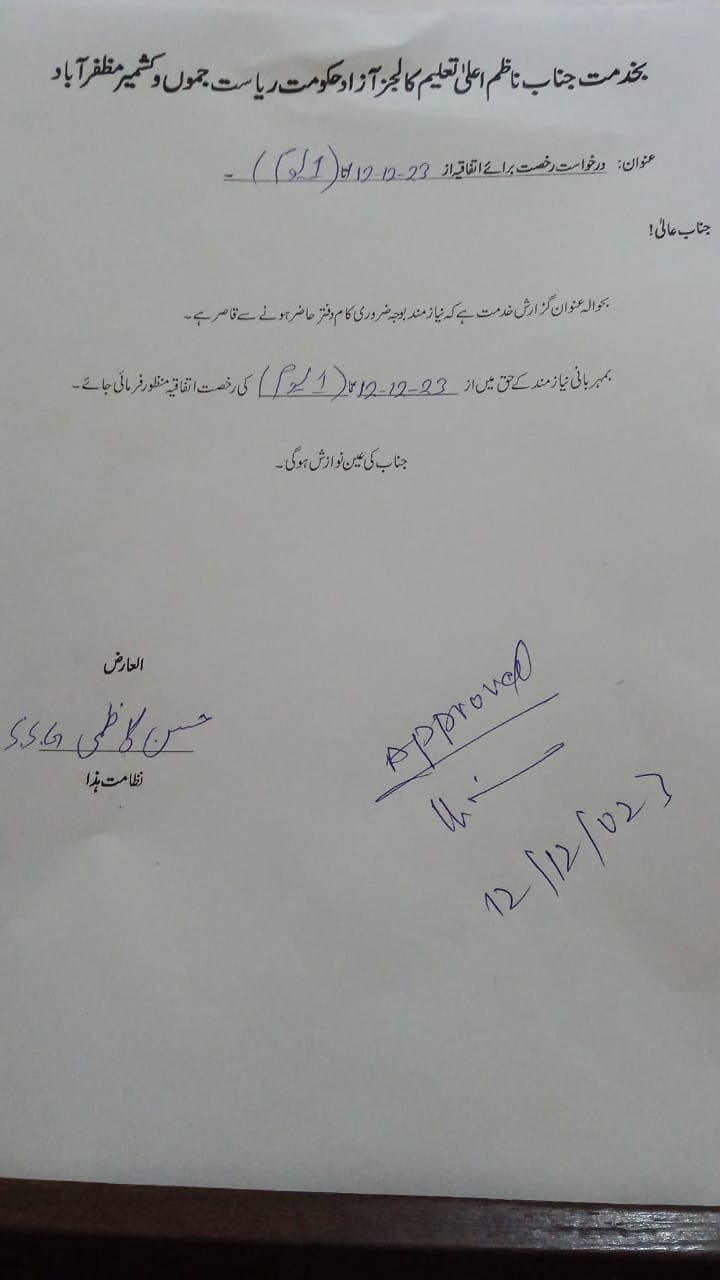 بخدمت جناب ناظم اعلیٰ تعلیم کالجز آزاد حکومت ریاست جموں و کشمیر مظفرآباد
عنوان: درخواست رخصت برائے اتفاقیہ از 12-12-23 تا (1 یوم) ۔
جناب عالی!
بحوالہ عنوان گزارش خدمت ہے کہ نیاز مند بوجہ ضروری کام دفتر حاضر ہونے سے قاصر ہے۔
بمہربانی نیاز مند کے حق میں از 12-12-23 تا (1 یوم) کی رخصت اتفاقیہ منظور فرمائی جائے۔
جناب کی عین نوازش ہوگی۔
العارض
حسن کاظمی S.S.G
نظامت ہذا
Approved
12/12/023